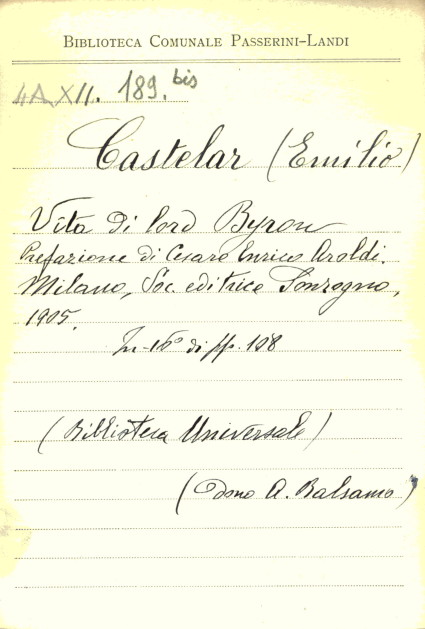 BIBLIOTECA COMUNALE PASSERINI-LANDI
4A XII. 189. bis
Castelar (Emilio)
Vita di lord Byron
Prefazione di Cesare Enrico Aroldi.
Milano, Soc. editrice Sonzogno,
1905.
In-16° di pp. 108
(Biblioteca Universale)
(Dono A. Balsamo)